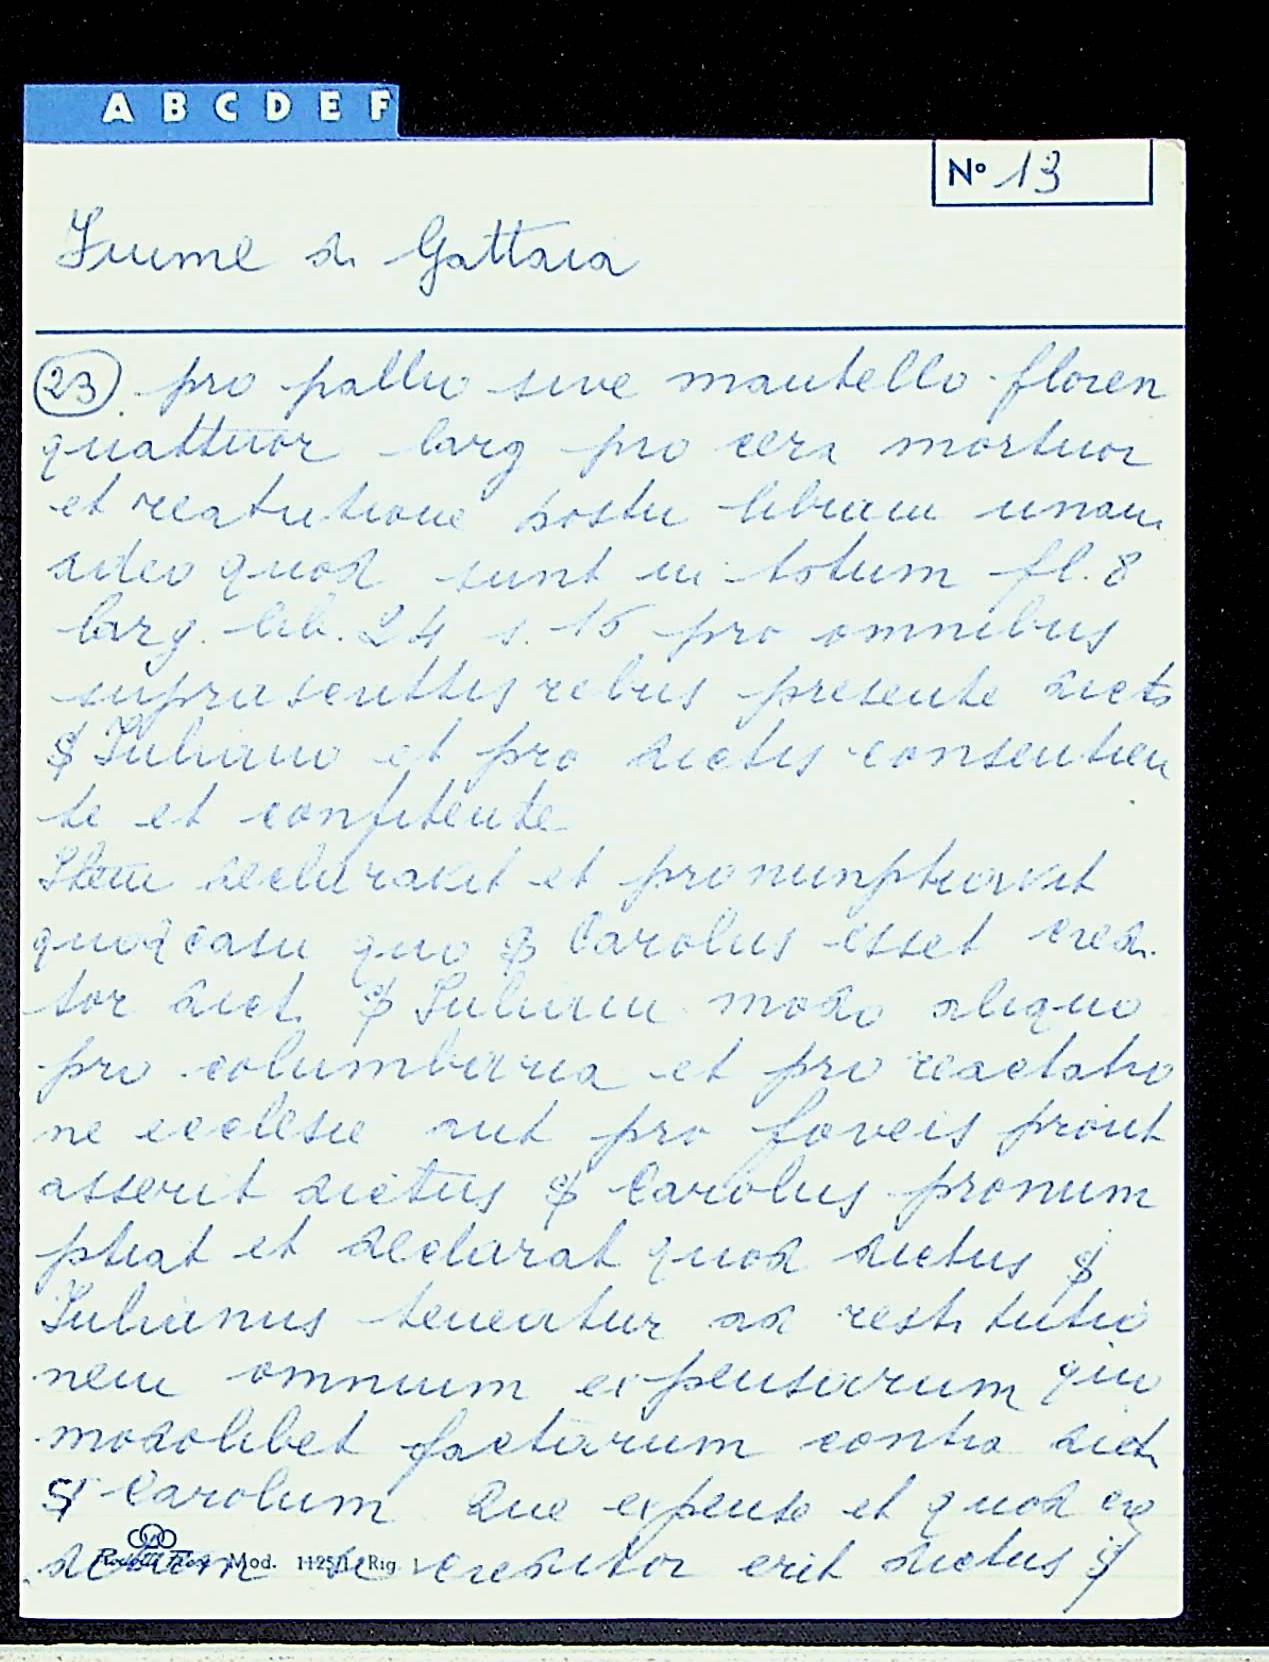 A B C D E F
Nº 13
Fiume di Gattaia
(23) pro pallio sive mantello floren
quattuor larg pro cera mortuor
et reatutione hostii libram unam
adeo quod sunt in totum fl. 8
larg. lib. 24 s. 15 pro omnibus
suprascrittis rebus presente dicto
$ Iuliano et pro dictis consentien
te et confitente
Item declaravit et pronumptiavit
quod casu quo $ Carolus esset cred.
tor dict. $ Iuliani modo aliquo
pro columbaria et pro reactatio
ne ecclesie aut pro foveis prout
asserit dictus $ Carolus pronum
ptiat et declarat quod dictus $
Iulianus teneatur ad restitutio
nem omnium expensarum quo
modolibet factarum contra dict
$ Carolum Que expense et quod
Mod. 1125/1 Rig. 1
creditor erit dictus $